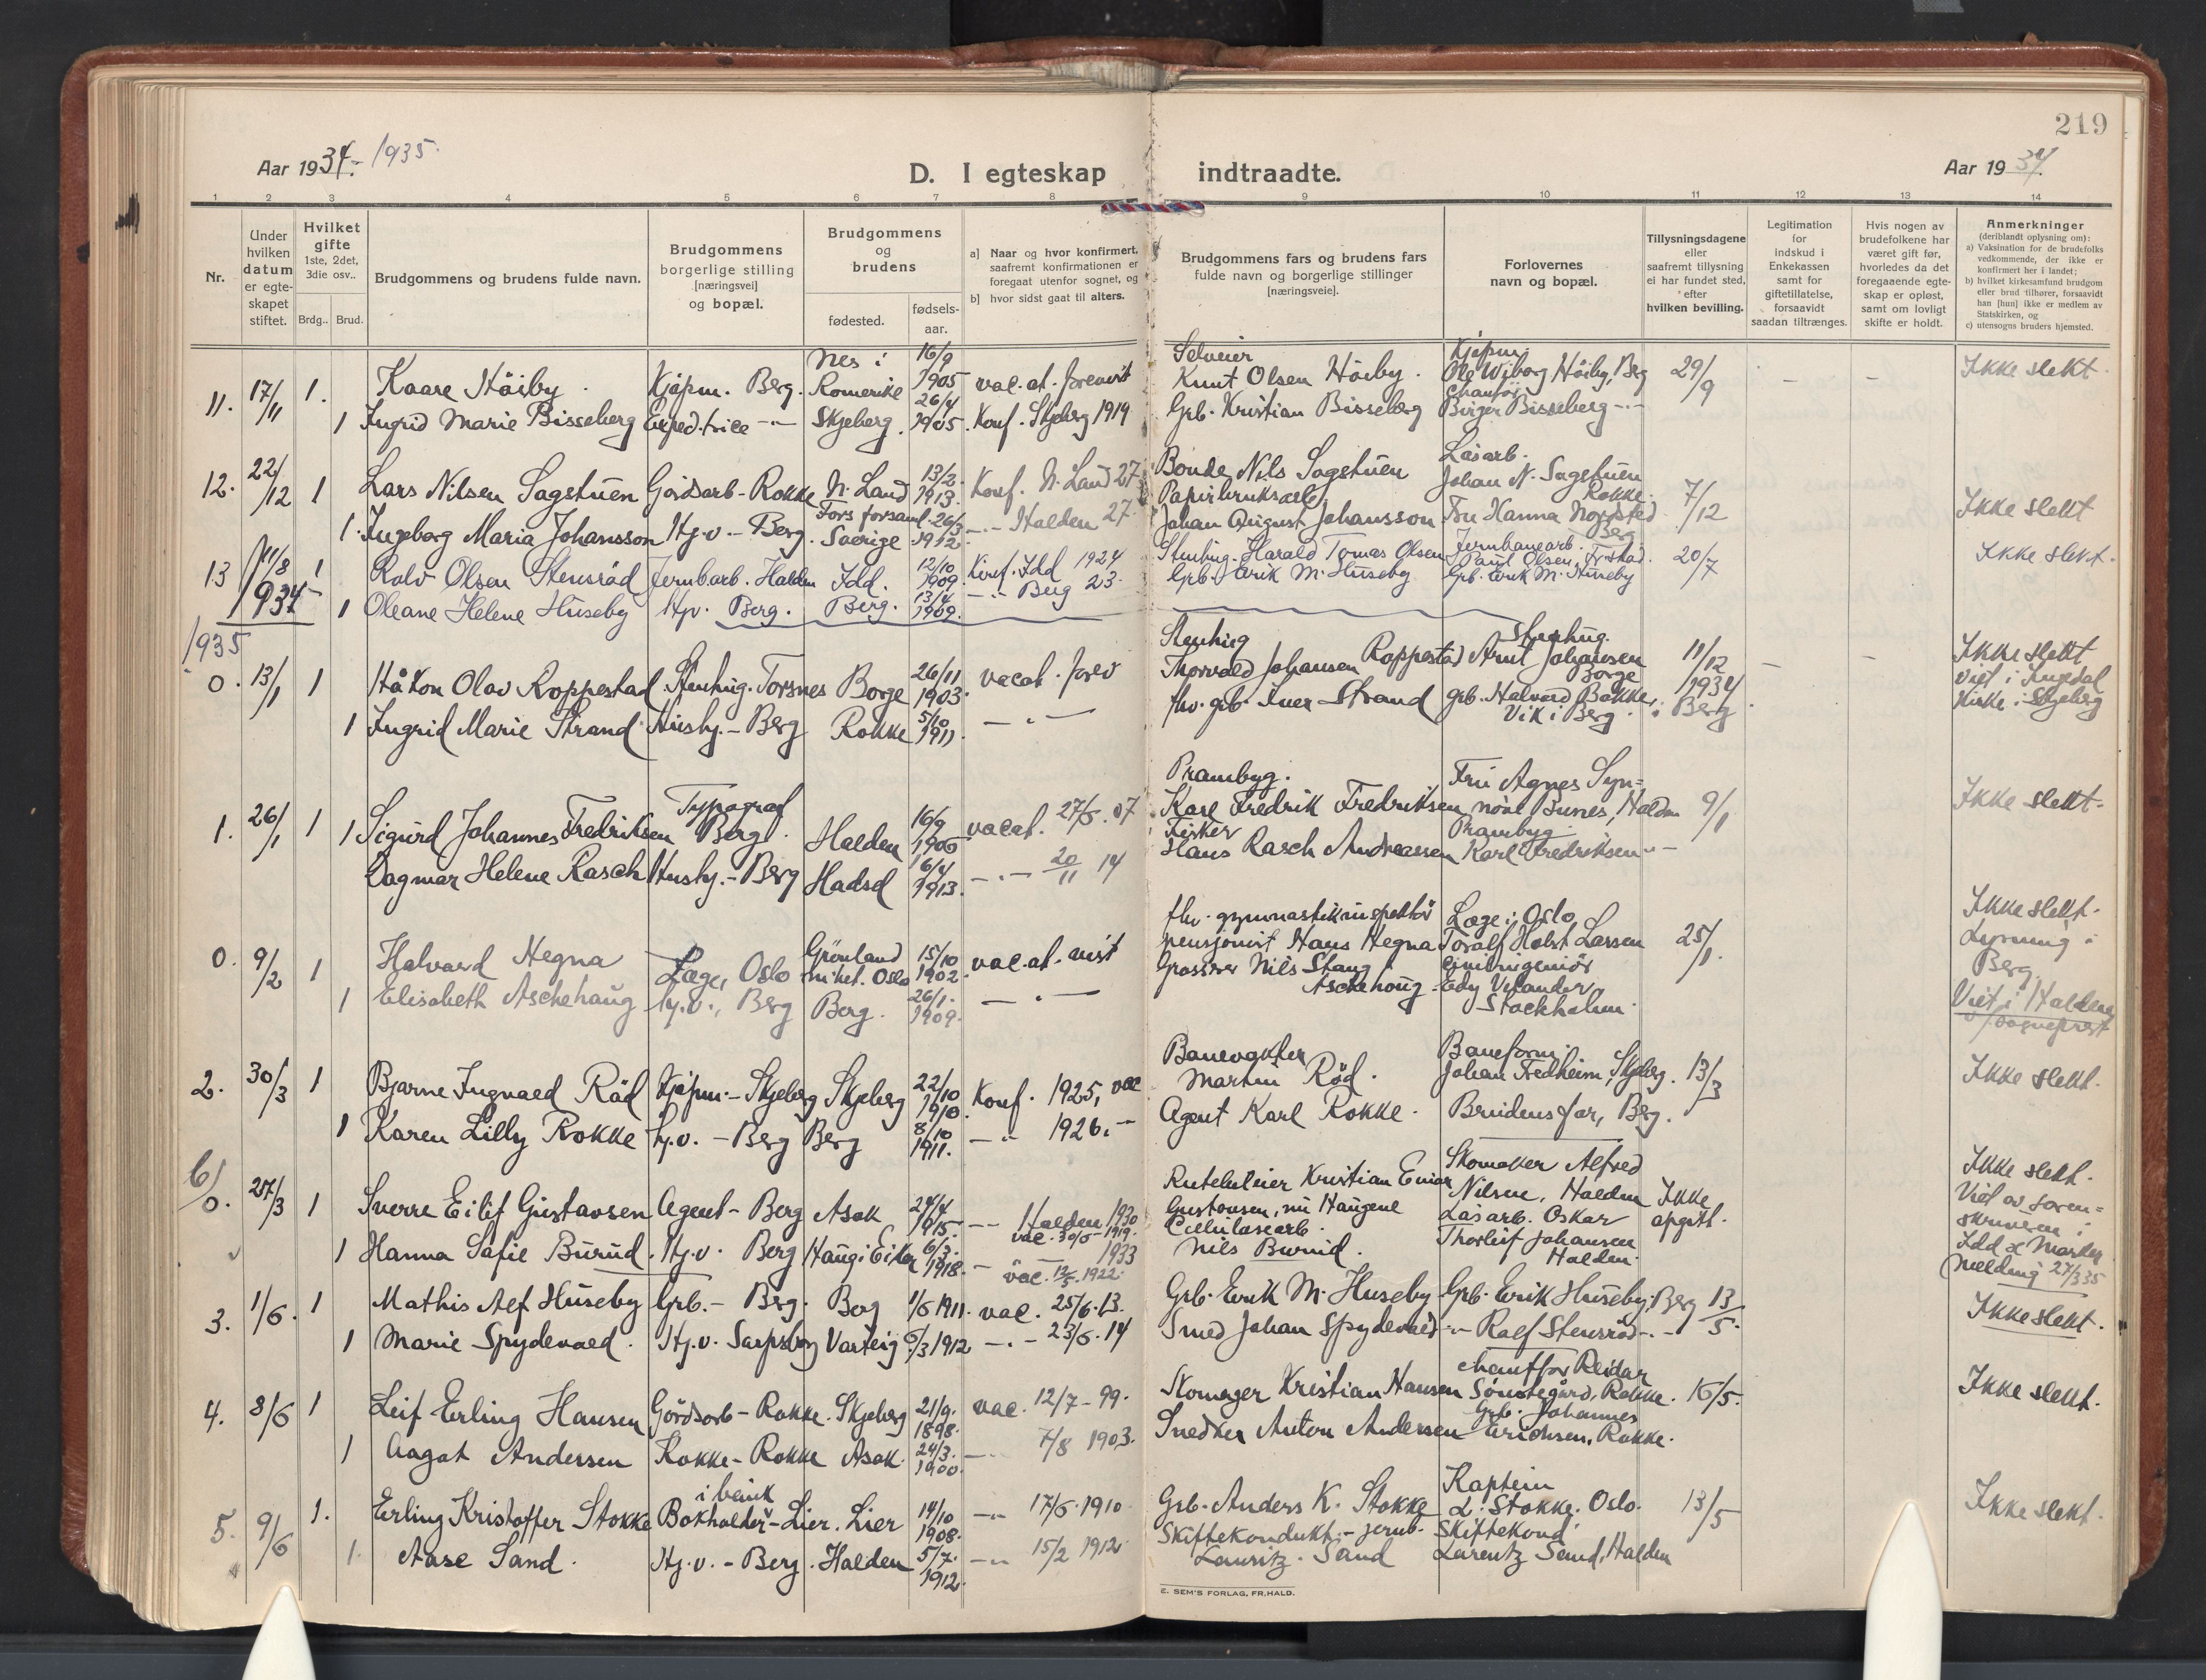 219
Aar 1934 - 1935.
D. I egteskap indtraadte.
Aar 1934.
1 2 3 4 5 6 7 8 9 10 11 12 13 14
Nr.
Under hvilken datum er egteskapet stiftet.
Hvilket gifte 1ste, 2det, 3die osv..
Brdg.. Brud.
Brudgommens og brudens fulde navn.
Brudgommens borgerlige stilling [næringsvei] og bopæl.
Brudgommens og brudens
fødested. fødselsaar.
a] Naar og hvor konfirmert, saafremt konfirmationen er foregaat utenfor sognet, og
b] hvor sidst gaat til alters.
Brudgommens fars og brudens fars fulde navn og borgerlige stillinger [næringsveie].
Forlovernes navn og bopæl.
Tillysningsdagene eller saafremt tillysning ei har fundet sted, efter hvilken bevilling.
Legitimation for indskud i Enkekassen samt for giftetillatelse, forsaavidt saadan tiltrænges.
Hvis nogen av brudefolkene har været gift før, hvorledes da det foregaaende egteskap er opløst, samt om lovligt skifte er holdt.
Anmerkninger (deriblandt oplysning om):
a) Vaksination for de brudefolks vedkommende, der ikke er konfirmert her i landet;
b) hvilket kirkesamfund brudgom eller brud tilhører, forsaavidt han [hun] ikke er medlem av Statskirken, og
c) utensogns bruders hjemsted.
11. 17/11 1. Kaare Høiby. Kjøpm. Berg. Nes i Romerike 16/9 1905 vac. at. Selveier Knut Olsen Høiby. Kjøpm. Ole Wiborg Høiby, Berg 29/9 - - Ikke slekt.
1 Ingrid Marie Bisseberg Exped.trice -"- Skjeberg. 26/4 1905. Konf. Skjeberg 1919 Grb. Kristian Bisseberg Chauffør Birger Bisseberg -"-
12. 22/12 1 Lars Nilsen Sagstuen Gårdsarb - Rokke N. Land 13/2 1913. Konf. N. Land 27 Bonde Nils Sagstuen Løsarb. Johan N. Sagstuen Rokke. 7/12 Ikke slekt
1. Ingeborg Maria Johansson Hj.v. - Berg. Fors forsaml. Sverige 26/3 1912. -"- Halden 27. Johan August Johansson Fru Hanna Nordsted Berg.
13 11/8 1934 1 Rolv Olsen Stensrød Jernbarb. Halden Idd. 12/10 1909. Konf. Idd 1924 Stenhug. Harald Tomas Olsen Jernbanearb. Paul Olsen, Fr.stad. 20/7 Ikke slekt.
1 Oleane Helene Huseby Hjv. Berg. Berg. 13/4 1909. -"- Berg 23. Grb. Erik M. Huseby Grb. Erik M. Huseby
1935
0. 13/1 1 Håkon Olav Roppestad Stenhug. Torsnes Borge 26/11 1903. vacat. Stenhug Thorvald Johansen Roppestad Stenhug. Arnt Johansen Borge 11/12 1934 i Berg - - Ikke slekt Viet i Ingedal kirke i Skjeberg
1 Ingrid Marie Strand Hushj. - Berg Rokke 5/10 1911. -"- fhv. grb. Iver Strand grb. Halvard Bakke, Vik i Berg.
1. 26/1 1 1 Sigurd Johannes Fredriksen Typograf Berg. Halden 16/9 1906 vacat. 27/6. 07 Prambyg. Karl Fredrik Fredriksen Fru Agnes Synnøve Bunes, Halden 9/1 Ikke slekt.
Dagmar Helene Rasch Hushj. - Berg Hadsel 16/4 1913. -"- 20/11 14 Fisker Hans Rasch Andreassen Prambyg. Karl Fredriksen -"-
0. 9/2 1 Halvard Hegna Læge, Oslo Grønland Oslo 15/10 1902. vac. at. fhv. gymnastikinspektør pensjonist Hans Hegna Læge i Oslo Toralf Holst Larsen 25/1. Ikke slekt. Lysning i Berg. Viet i Halden v/ sogneprest
1 Elisabeth Aschehoug hj.v., Berg Berg. 26/1. 1909. -"- Grosserer Nils Stang Aschehoug Civilingeniør Edy Velander Stockholm.
2. 30/3 1 Bjarne Ingvald Rød Kjøpm. - Skjeberg Skjeberg 22/10 1910. Konf. 1925, vac Banevokter Martin Rød. Baneform. Johan Fredheim, Skjeberg. 13/3 Ikke slekt.
1 Karen Lilly Rokke hj.v. - Berg Berg 8/10 1911. -"- 1926. -"- Agent Karl Rokke. Brudens far, Berg.
b/ 0. 27/3 1 Sverre Eilif Gustavsen Agent - Berg Asak 24/4 1915. -"- Halden 1930 vac. 30/5 - 1919. Rutebileier Kristian Einar Gustavsen, nu Haugene Skomaker Alfred Nilsen, Halden Ikke opgitt. Ikke slekt. Viet av sorenskriveren i Idd & Marker Melding 27/3 35
1 Hanna Sofie Burud. Hj.v. Berg Haug i Eiker 6/3. 1918. - 1933 vac. 12/5. 1922. Cellulosearb. Nils Burud. Løsarb. Oskar Thorleif Johansen Halden.
3. 1/6. 1 Mathis Alf Huseby Grb. - Berg. Berg 1/6 1911. vac. 25/6. 13. Grb. Erik M. Huseby Grb. Erik Huseby, Berg 13/5. Ikke slekt.
1 Marie Spydevold. Hj.v. Sarpsborg Varteig 6/3 1912 -"- 23/6. 14 Smed Johan Spydevold -"- Rolf Stensrød -"-
4. 8/6 1 Leif Erling Hansen Gårdsarb - Rokke. Skjeberg 21/9. 1898. vac. 12/7 - 99. Skomager Kristian Hansen Chauffør Reidar Sønstegård, Rokke. 16/5. Ikke slekt.
1 Aagot Andersen Kokke - Rokke Asak. 24/3. 1900. -"- 7/8 1903. Snedker Anton Andersen Grb. Johannes Erichsen, Rokke.
5. 9/6 1. Erling Kristoffer Stokke Bokholder i bank - Lier. Lier 14/10 1908. -"- 17/6. 1910 Grb. Anders K. Stokke Kaptein L. Stokke. Oslo. 13/5 Ikke slekt.
1. Aase Sand. Hj.v. - Berg. Halden 5/7. 1912. -"- 15/2 1912. Skiftekondukt. - jernb. Lauritz. Sand Skiftekond. Larentz Sand, Halden
E. SEM'S FORLAG, FR.HALD.